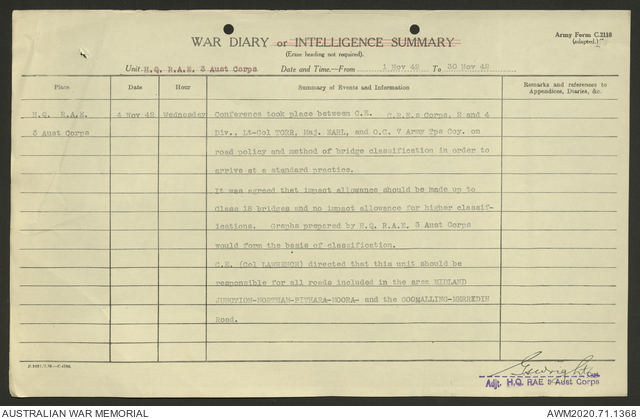 Army Form C.2118
(adapted.)
WAR DIARY or INTELLIGENCE SUMMARY
(Erase heading not required).
Unit H.Q. R.A.E. 3 Aust Corps Date and Time.—From 1 Nov 42 To 30 Nov 42
Place Date Hour Summary of Events and Information Remarks and references to
Appendices, Diaries, &c.
H.Q. R.A.E. 4 Nov 42 Wednesday Conference took place between C.E. C.R.E.s Corps, 2 and 4
3 Aust Corps Div., Lt-Col TORR, Maj. EARL, and O.C. 7 Army Tps Coy. on
road policy and method of bridge classification in order to
arrive at a standard practice.
It was agreed that impact allowance should be made up to
Class 18 bridges and no impact allowance for higher classif-
ications. Graphs prepared by H.Q. R.A.E. 3 Aust Corps
would form the basis of classification.
C.E. (Col LAWRENCE) directed that this unit should be
responsible for all roads included in the area MIDLAND
JUNCTION-NORTHAM-PITHARA-MOORA- and the GOOMALLING-MERREDIN
Road.
Capt
Adjt. H.Q. RAE 3 Aust Corps
AUSTRALIAN WAR MEMORIAL AWM2020.71.1368